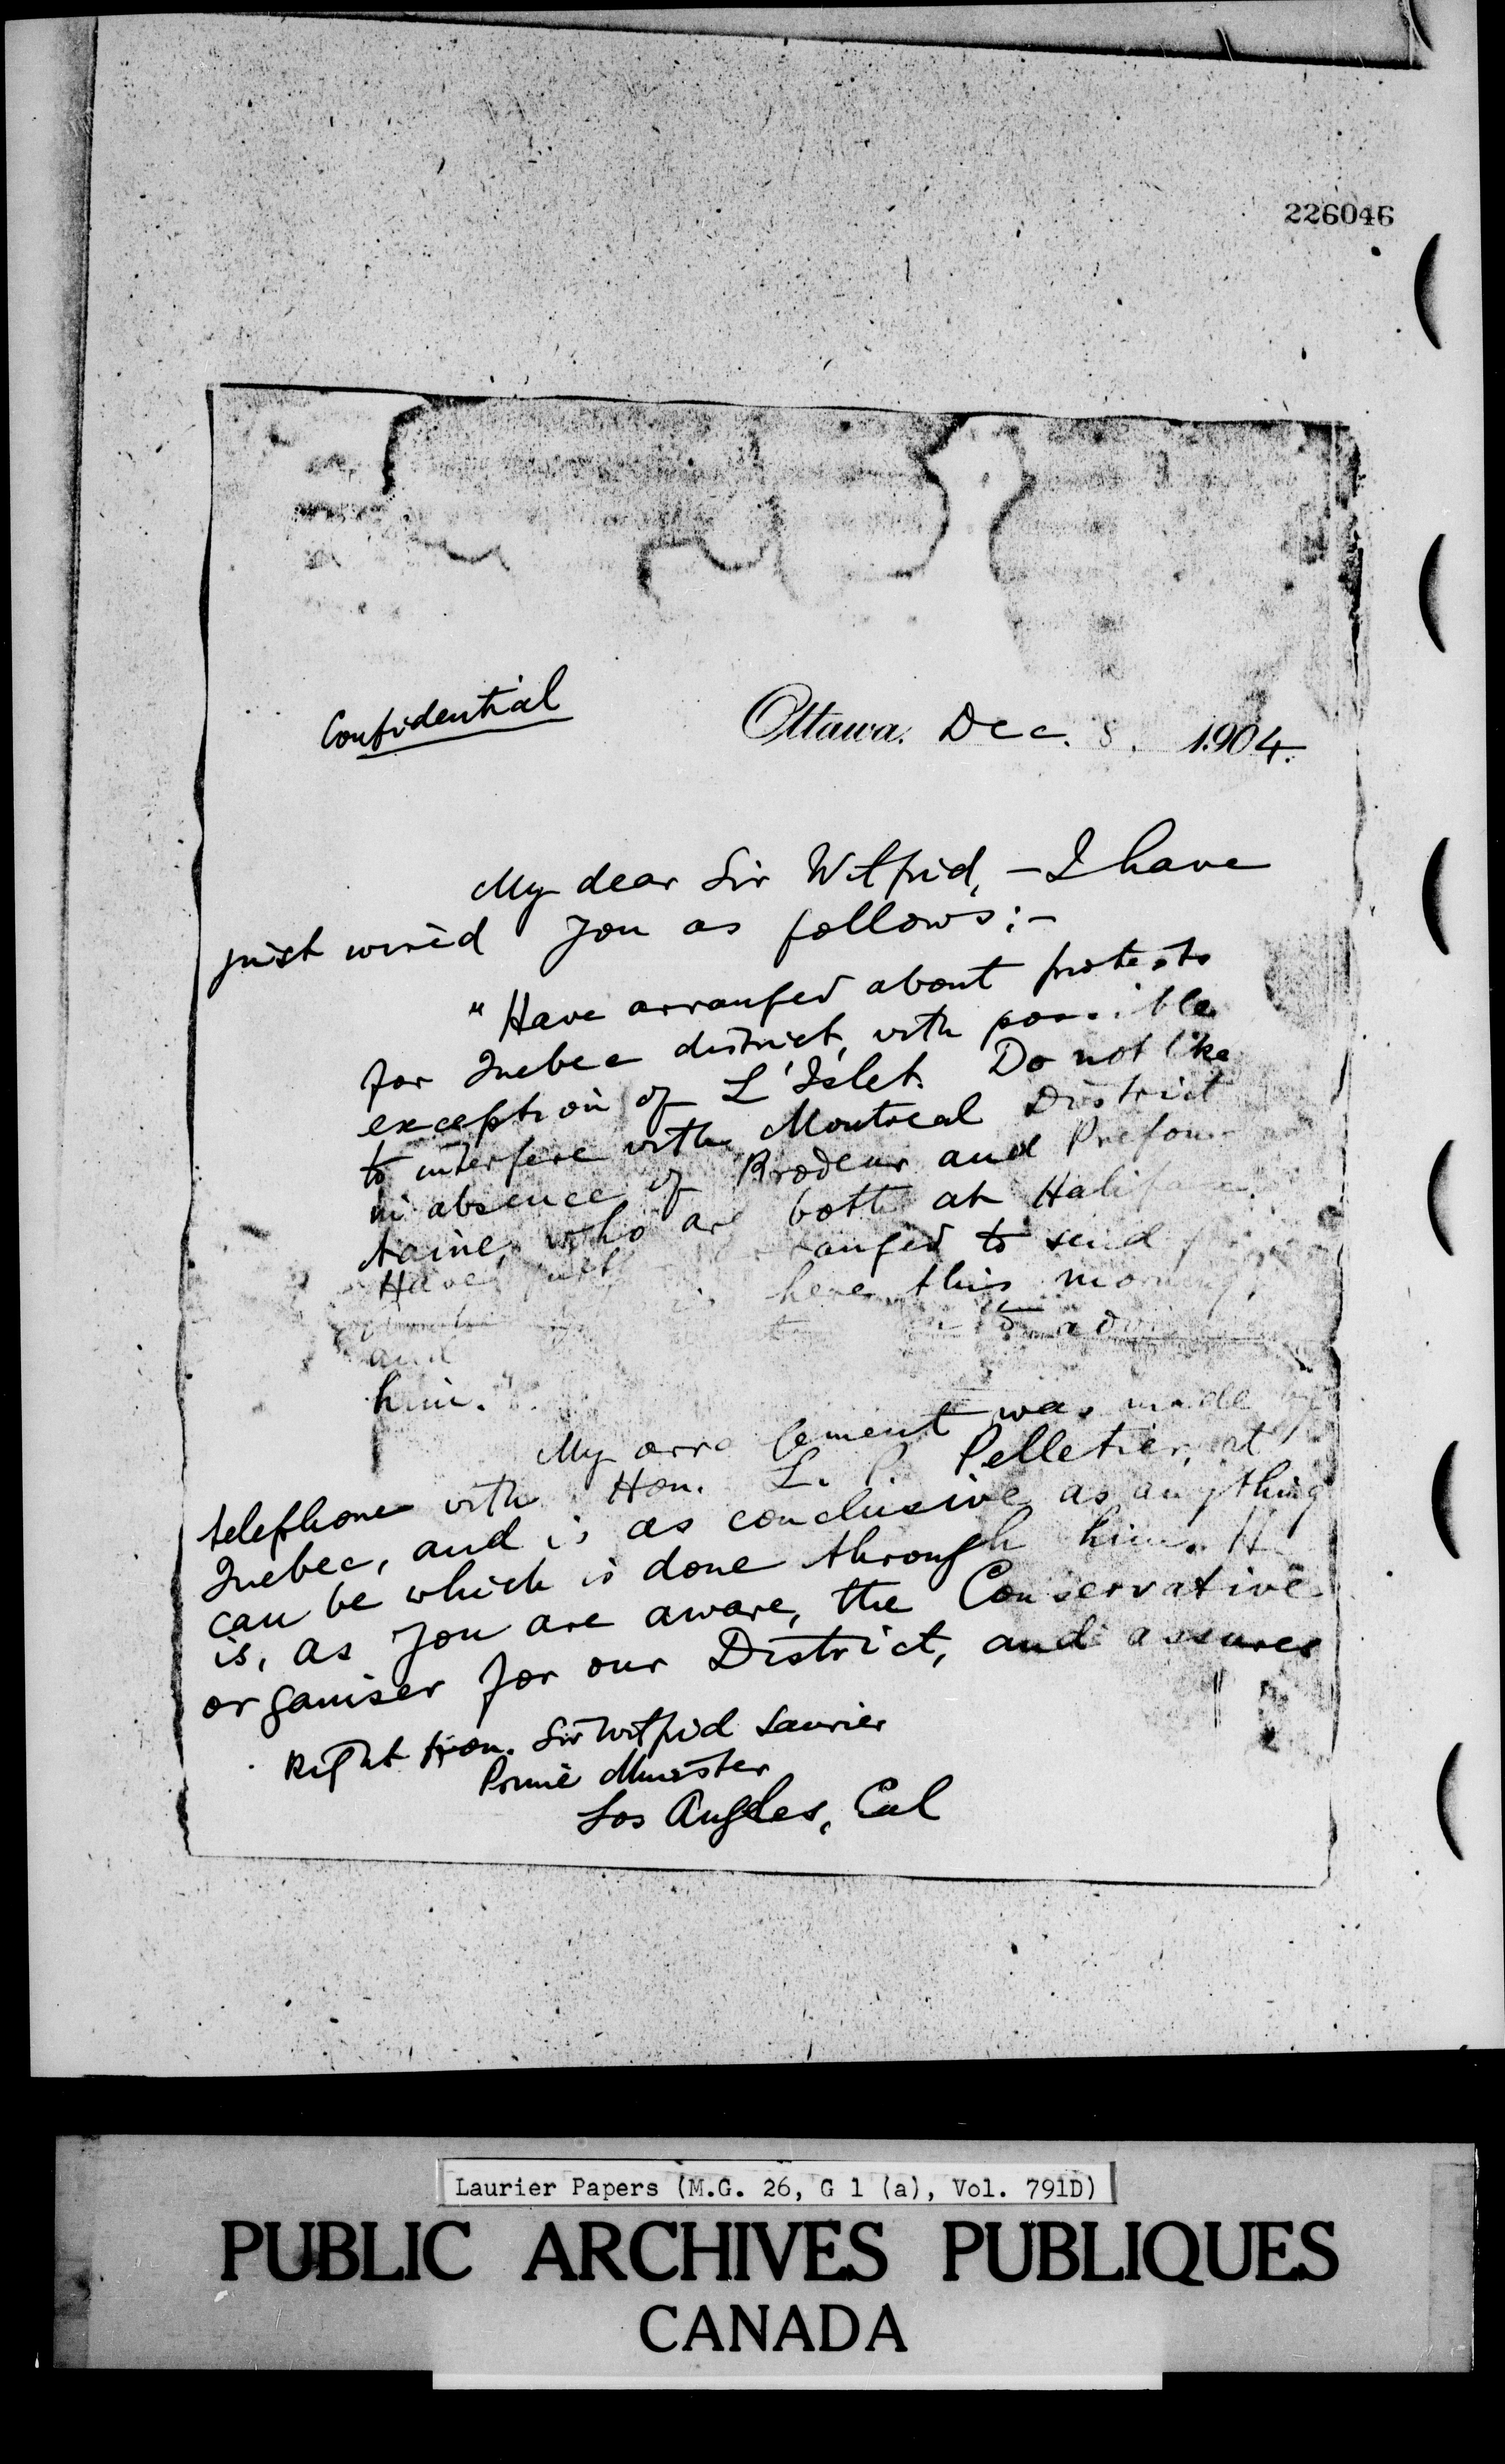 226046
Confidential
Ottawa. Dec. 8, 1904.
My dear Sir Wilfrid, – I have
just wired you as follows:–
"Have arranged about protests
for Quebec district, with possible
exception of L'Islet. Do not like
to interfere with Montreal District
in absence of Brodeur and Prefon-
taine, who are both at Halifax.
Have to send
here this morning,
and
him."
My arrangement was made by
telephone with Hon. L. P. Pelletier, at
Quebec, and is as conclusive as anything
can be which is done through him. He
is, as you are aware, the Conservative
organiser for our District, and assures
Right Hon. Sir Wilfrid Laurier
Prime Minister
Los Angeles, Cal
Laurier Papers (M.G. 26, G 1 (a), Vol. 791D)
PUBLIC ARCHIVES PUBLIQUES
CANADA